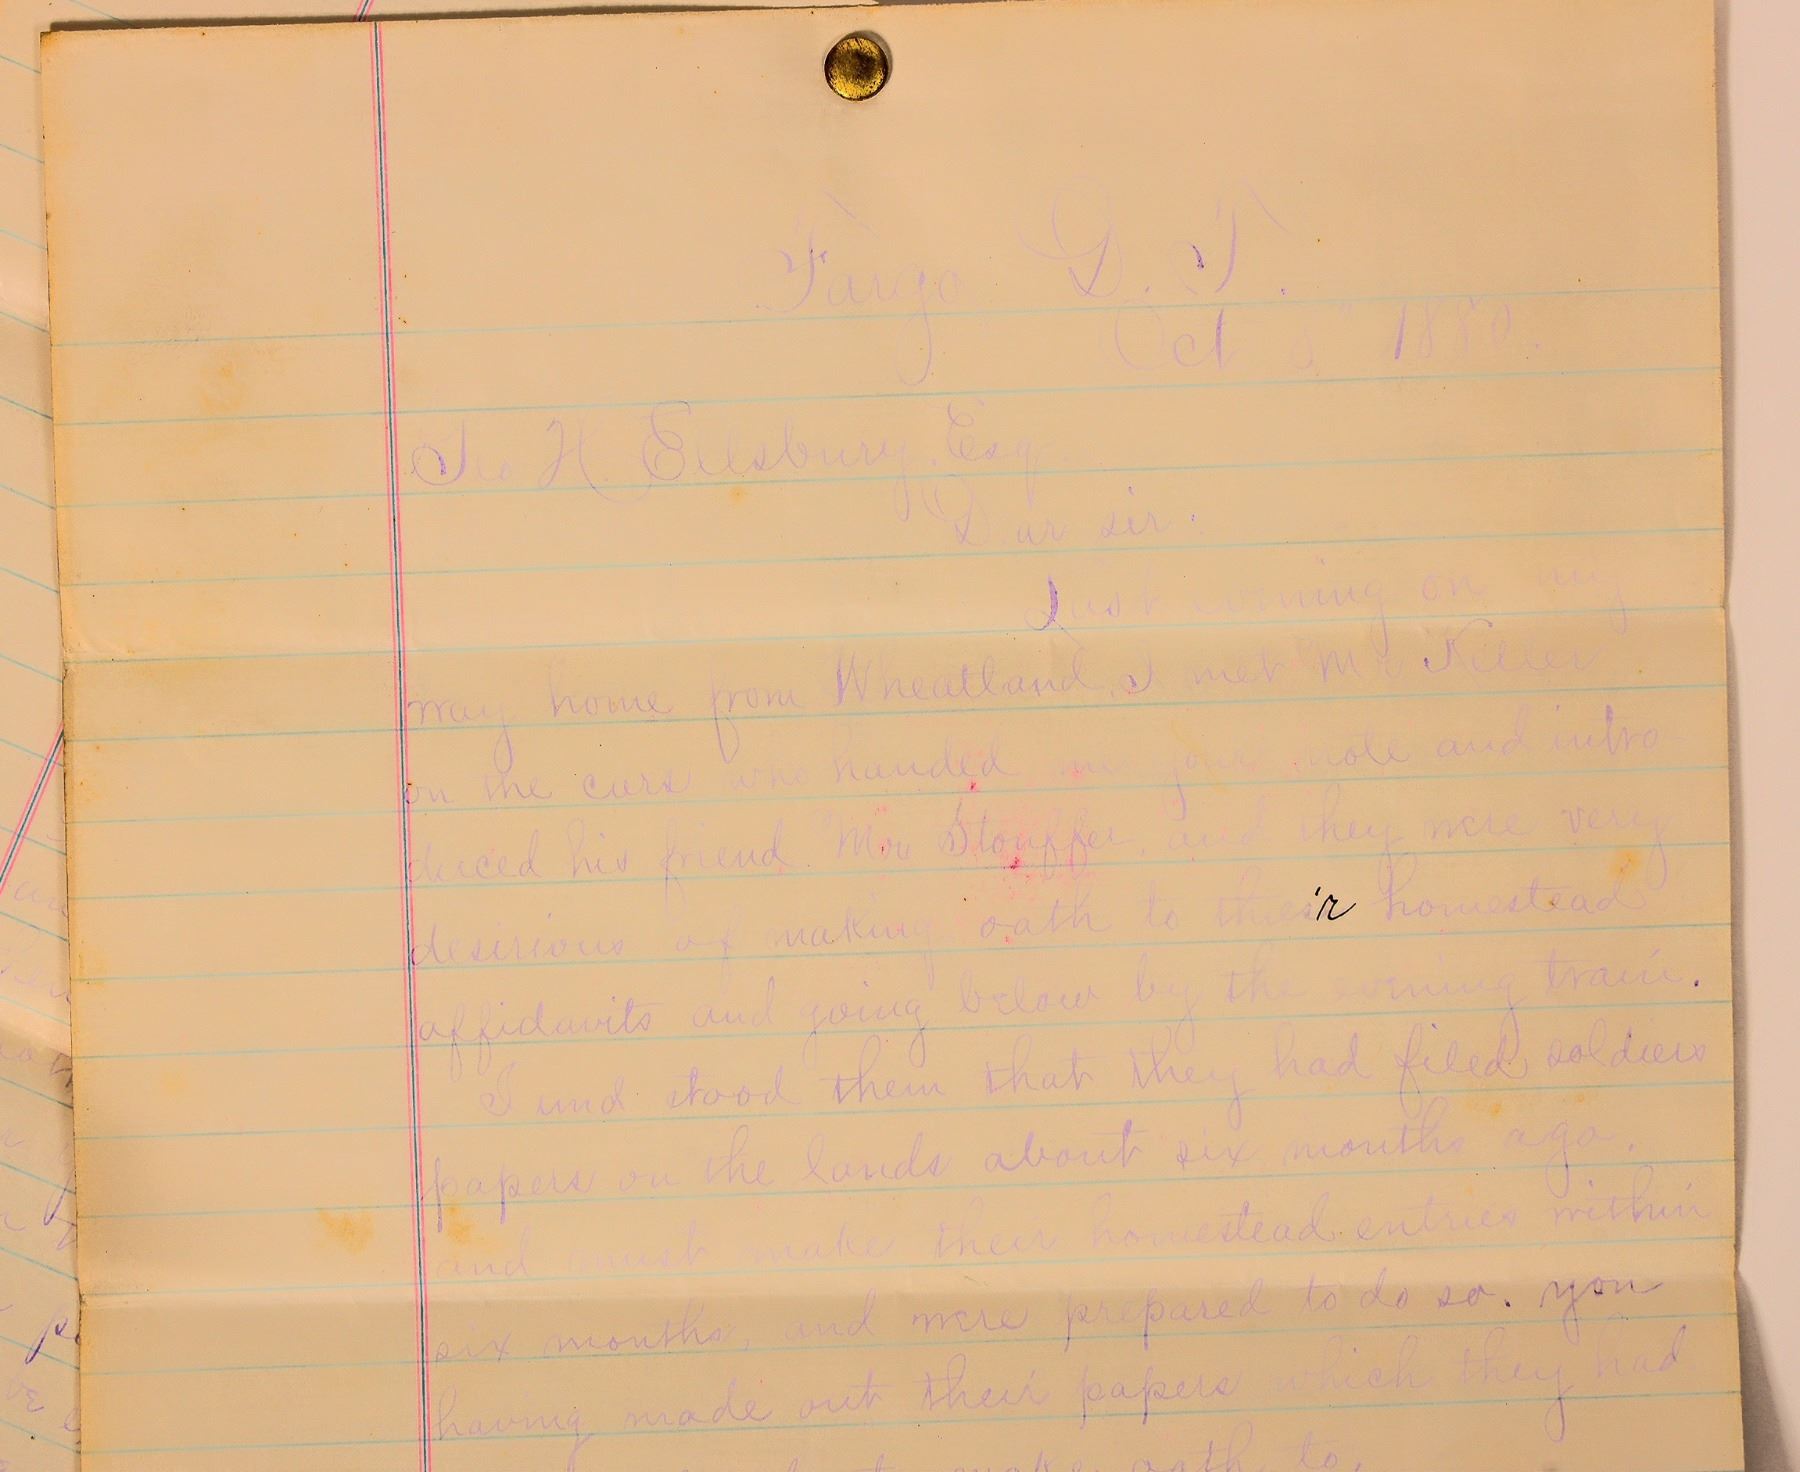 Fargo D. T.
Oct 5" 1880.
Geo H. Ellsbury, Esq.
Dear sir:
Last evening on my
way home from Wheatland, I met Mr Keller
on the cars who handed me your note and intro-
duced his friend Mr Stouffer, and they were very
desirious of making oath to their homestead
affidavits and going below by the evening train.
I und stood them that they had filed soldiers
papers on the lands about six months ago,
and must make their homestead entries within
six months, and were prepared to do so. you
having made out their papers which they had
make oath to.